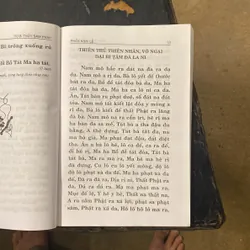 Sống xuống rũ
Bồ Tát Ma ha tát,
PHẦN KINH LỄ
THIÊN THỦ THIÊN NHÃN, VÔ NGẠI
ĐẠI BI TÂM ĐÀ LA NI
Nam mô hắc ra đát na đa ra dạ
da. Nam mô a rị da, Bà lô yết đế thước
bát ra da, Bồ Đề tát đỏa bà da, Ma ha
tát đỏa bà da, Ma ha ca lô ni ca da.
Án, tát bàn ra phạt duệ, số đát na đát
tỏa. Nam mô tất kiết lật đỏa y mông a
rị da, Bà lô kiết đế, thất Phật ra lăng
đà bà. Nam mô na ra cẩn trì hê rị, Ma
ha bàn đa sa mế, tát bà a tha đậu du
bằng, A thệ dựng, Tát bà tát đa, Na ma
bà già, Ma phạt đạt đậu, đát điệt tha.
Án, A bà lô hê, Lô ca đế, Ca ra đế, Di
hê rị, Ma ha bồ đề tát đỏa, Tát bà
tát bà, Ma ra ma ra, Ma hê ma hê rị đà
dựng. Cu lô cu lô yết mông, độ lô độ lô
phạt xà da đế, Ma ha phạt xà da đế,
Đà ra đà ra, Địa rị ni, Thất Phật ra
da, Dá ra dá ra. Mạ mạ phạt ma ra,
Mục đế lệ, Y hê y hê, Thất na thất na,
A ra sâm Phật ra xá lợi, phạt sa phạt
sâm, Phật ra xá da, Hô lô hô lô ma ra,